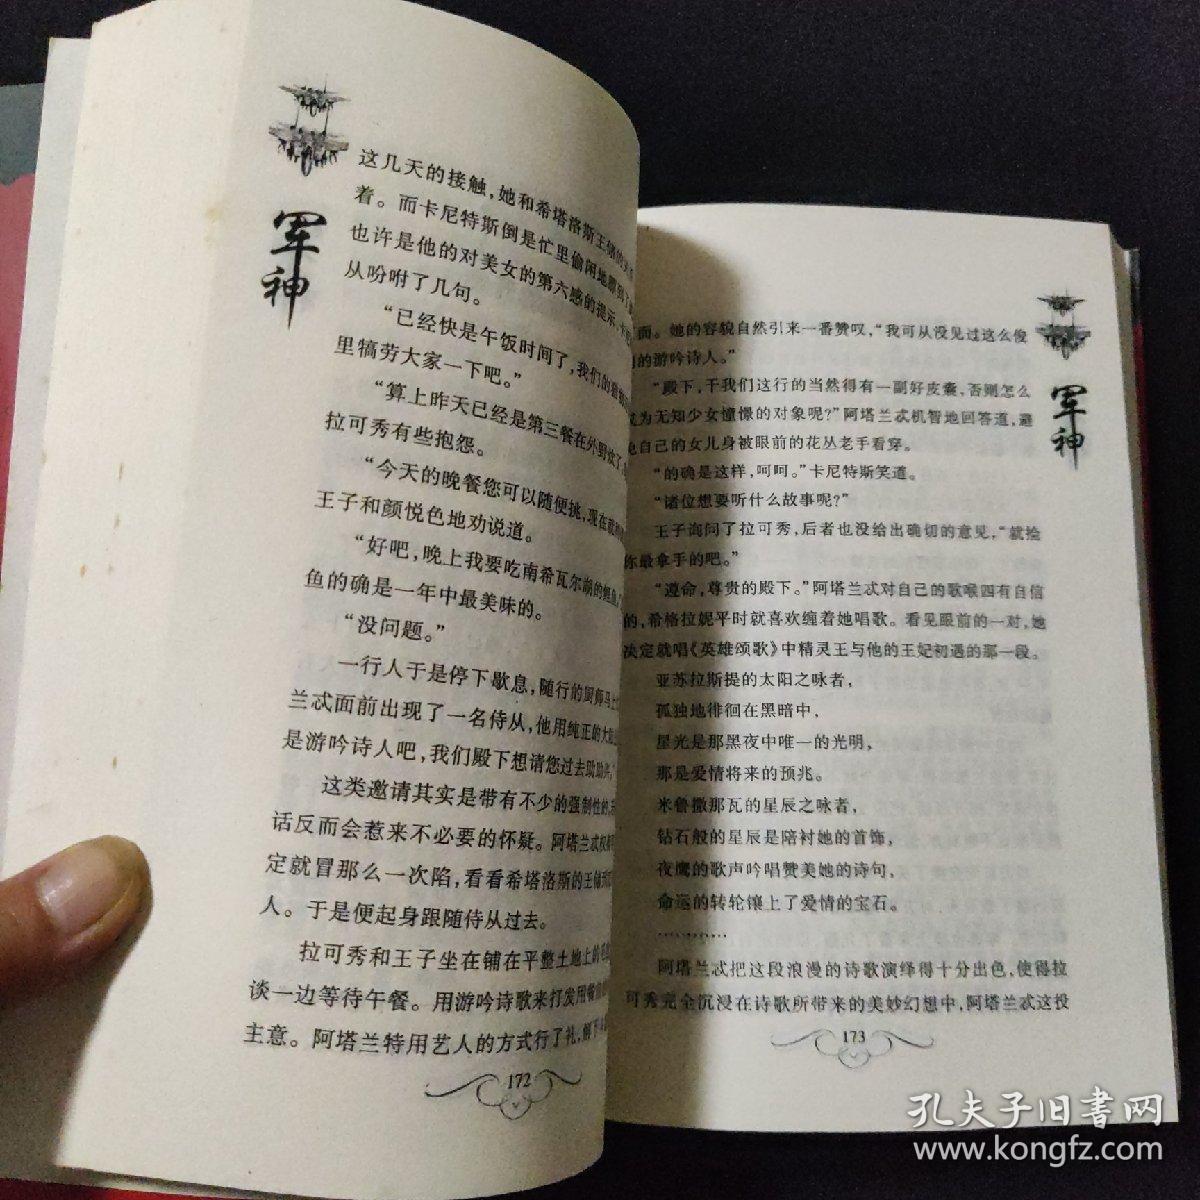 军神
这几天的接触，她和希塔洛斯王储的
着。而卡尼特斯倒是忙里偷闲地
也许是他的对美女的第六感的提示，卡
从吩咐了几句。
“已经快是午饭时间了，我们的
里犒劳大家一下吧。”
“算上昨天已经是第三餐在外野炊了，
拉可秀有些抱怨。
“今天的晚餐您可以随便挑，现在
王子和颜悦色地劝说道。
“好吧，晚上我要吃南希瓦尔湖的鲤鱼，
鱼的确是一年中最美味的。
“没问题。”
一行人于是停下歇息，随行的厨师马上
兰忒面前出现了一名侍从，他用纯正的大
是游吟诗人吧，我们殿下想请您过去助助兴，”
这类邀请其实是带有不少的强制性的，
话反而会惹来不必要的怀疑。阿塔兰忒
定就冒那么一次陷，看看希塔洛斯的王储
人。于是便起身跟随侍从过去。
拉可秀和王子坐在铺在平整土地上的毛
谈一边等待午餐。用游吟诗歌来打发用餐
主意。阿塔兰特用艺人的方式行了礼，解下
172
军神
面。她的容貌自然引来一番赞叹，“我可从没见过这么俊
的游吟诗人。”
“殿下，干我们这行的当然得有一副好皮囊，否则怎么
成为无知少女憧憬的对象呢？”阿塔兰忒机智地回答道，避
免自己的女儿身被眼前的花丛老手看穿。
“的确是这样，呵呵。”卡尼特斯笑道。
“诸位想要听什么故事呢？”
王子询问了拉可秀，后者也没给出确切的意见，“就捡
你最拿手的吧。”
“遵命，尊贵的殿下。”阿塔兰忒对自己的歌喉四有自信
的，希格拉妮平时就喜欢缠着她唱歌。看见眼前的一对，她
决定就唱《英雄颂歌》中精灵王与他的王妃初遇的那一段。
亚苏拉斯提的太阳之咏者，
孤独地徘徊在黑暗中，
星光是那黑夜中唯一的光明，
那是爱情将来的预兆。
米鲁撒那瓦的星辰之咏者，
钻石般的星辰是陪衬她的首饰，
夜鹰的歌声吟唱赞美她的诗句，
命运的转轮镶上了爱情的宝石。
…………
阿塔兰忒把这段浪漫的诗歌演绎得十分出色，使得拉
可秀完全沉浸在诗歌所带来的美妙幻想中，阿塔兰忒这投
173
孔夫子旧书网
www.kongfz.com